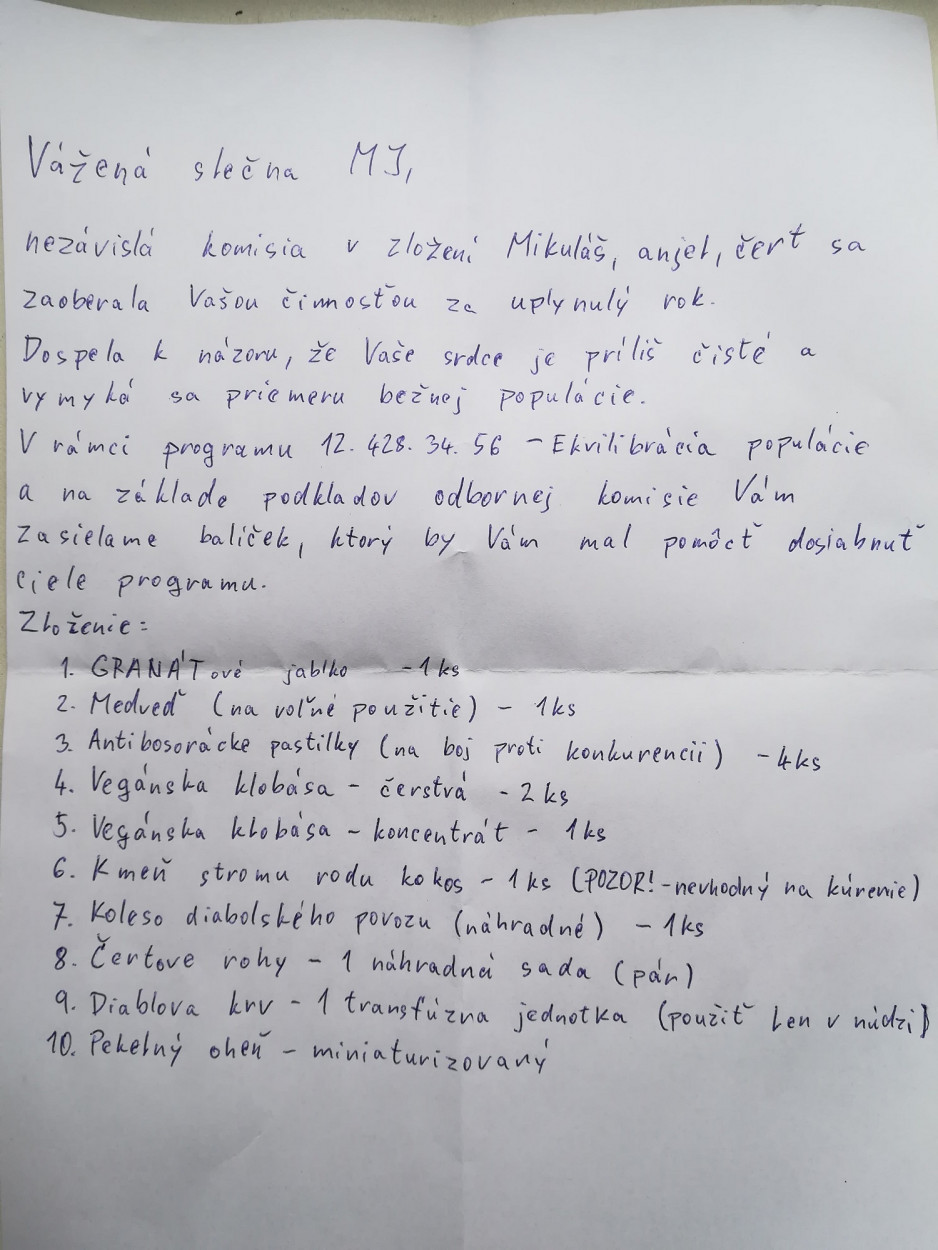 Vážená slečna MJ,
nezávislá komisia v zložení Mikuláš, anjel, čert sa
zaoberala Vašou činnosťou za uplynulý rok.
Dospela k názoru, že Vaše srdce je príliš čisté a
vymyká sa priemeru bežnej populácie.
V rámci programu 12.428.34.56 - Ekvilibrácia populácie
a na základe podkladov odbornej komisie Vám
zasielame balíček, ktorý by Vám mal pomôcť dosiahnuť
ciele programu.
Zloženie:
1. GRANÁTové jablko - 1ks
2. Medveď (na voľné použitie) - 1ks
3. Antibosorácke pastilky (na boj proti konkurencii) - 4ks
4. Vegánska klobása - čerstvá - 2ks
5. Vegánska klobása - koncentrát - 1ks
6. Kmeň stromu rodu kokos - 1ks (POZOR! - nevhodný na kúrenie)
7. Koleso diabolského povozu (náhradné) - 1ks
8. Čertove rohy - 1 náhradná sada (pár)
9. Diablova krv - 1 transfúzna jednotka (použiť len v núdzi)
10. Pekelný oheň - miniaturizovaný